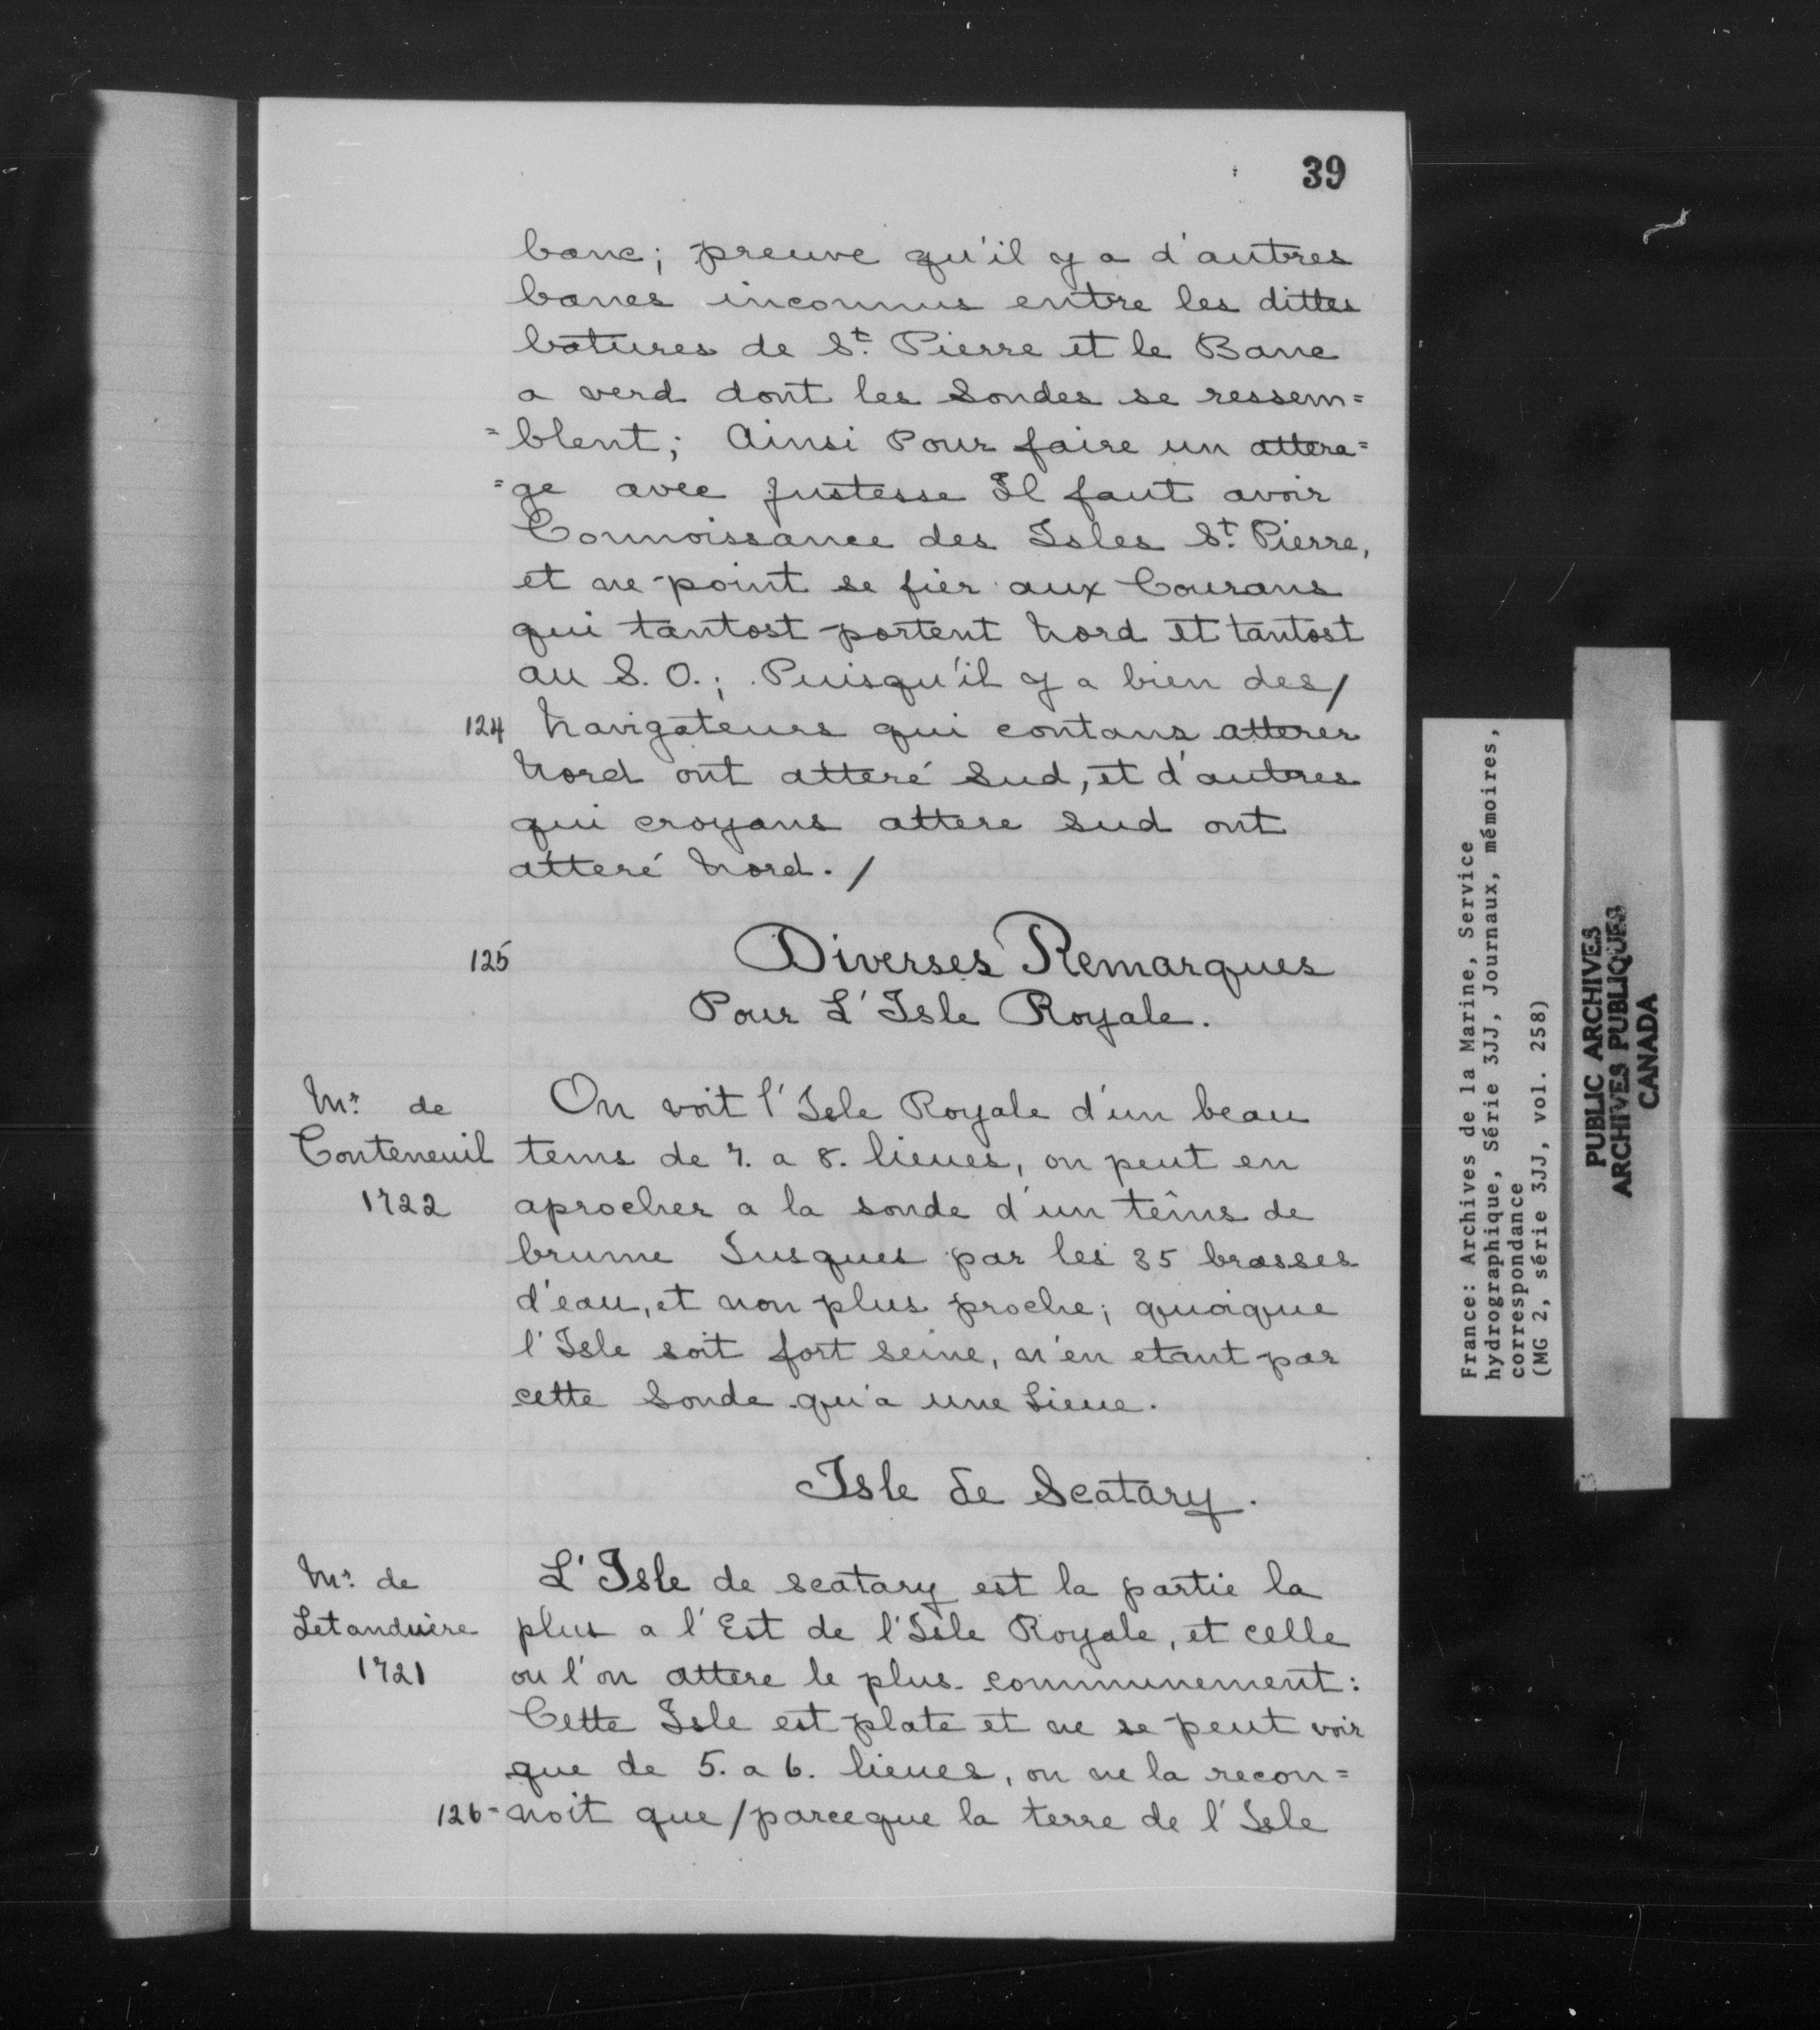 39
banc; preuve qu'il y a d'autres
bancs inconnus entre les dittes
batures de St. Pierre et le Banc
a verd dont les Sondes se ressem=
=blent; Ainsi Pour faire un attera=
=ge avec Justesse Il faut avoir
Connoissance des Isles St. Pierre,
et ne point se fier aux Courans
qui tantost portent Nord et tantost
au S. O.; Puisqu'il y a bien des/
124 Navigateurs qui contans atterer
Nord ont atteré Sud, et d'autres
qui croyans attere Sud ont
atteré Nord. /
125 Diverses Remarques
Pour L'Isle Royale.
Mr. de
Conteneuil
1722
On voit l'Isle Royale d'un beau
tems de 7. a 8. lieues, on peut en
aprocher a la sonde d'un têms de
brume Jusques par les 35 brasses
d'eau, et non plus proche; quoique
l'Isle soit fort seine, n'en etant par
cette Sonde qu'a une Lieue.
Isle de Scatary.
Mr. de
Letanduère
1721
L'Isle de scatary est la partie la
plus a l'Est de l'Isle Royale, et celle
ou l'on attere le plus communement:
Cette Isle est plate et ne se peut voir
que de 5. a 6. lieues, on ne la recon=
126 =noit que /parceque la terre de l'Isle
France: Archives de la Marine, Service
hydrographique, Série 3JJ, Journaux, mémoires,
correspondance
(MG 2, série 3JJ, vol. 258)
PUBLIC ARCHIVES
ARCHIVES PUBLIQUES
CANADA